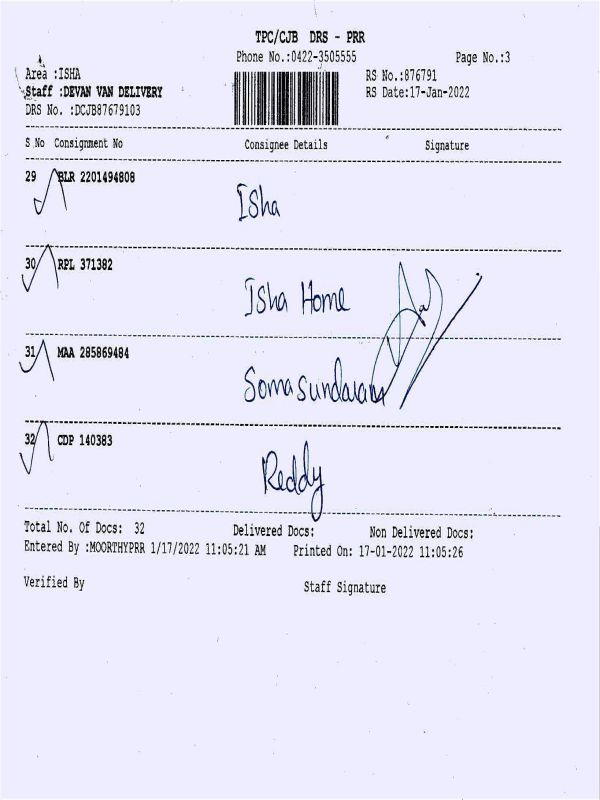 TPC/CJB DRS - PRR
Phone No.:0422-3505555 Page No.:3
Area :ISHA RS No.:876791
Staff :DEVAN VAN DELIVERY RS Date:17-Jan-2022
DRS No. :DCJB87679103
S No Consignment No Consignee Details Signature
29 BLR 2201494808
Isha
30 RPL 371382
Isha Home
31 MAA 285869484
Somasundaram
32 CDP 140383
Reddy
Total No. Of Docs: 32 Delivered Docs: Non Delivered Docs:
Entered By :MOORTHYPRR 1/17/2022 11:05:21 AM Printed On: 17-01-2022 11:05:26
Verified By Staff Signature